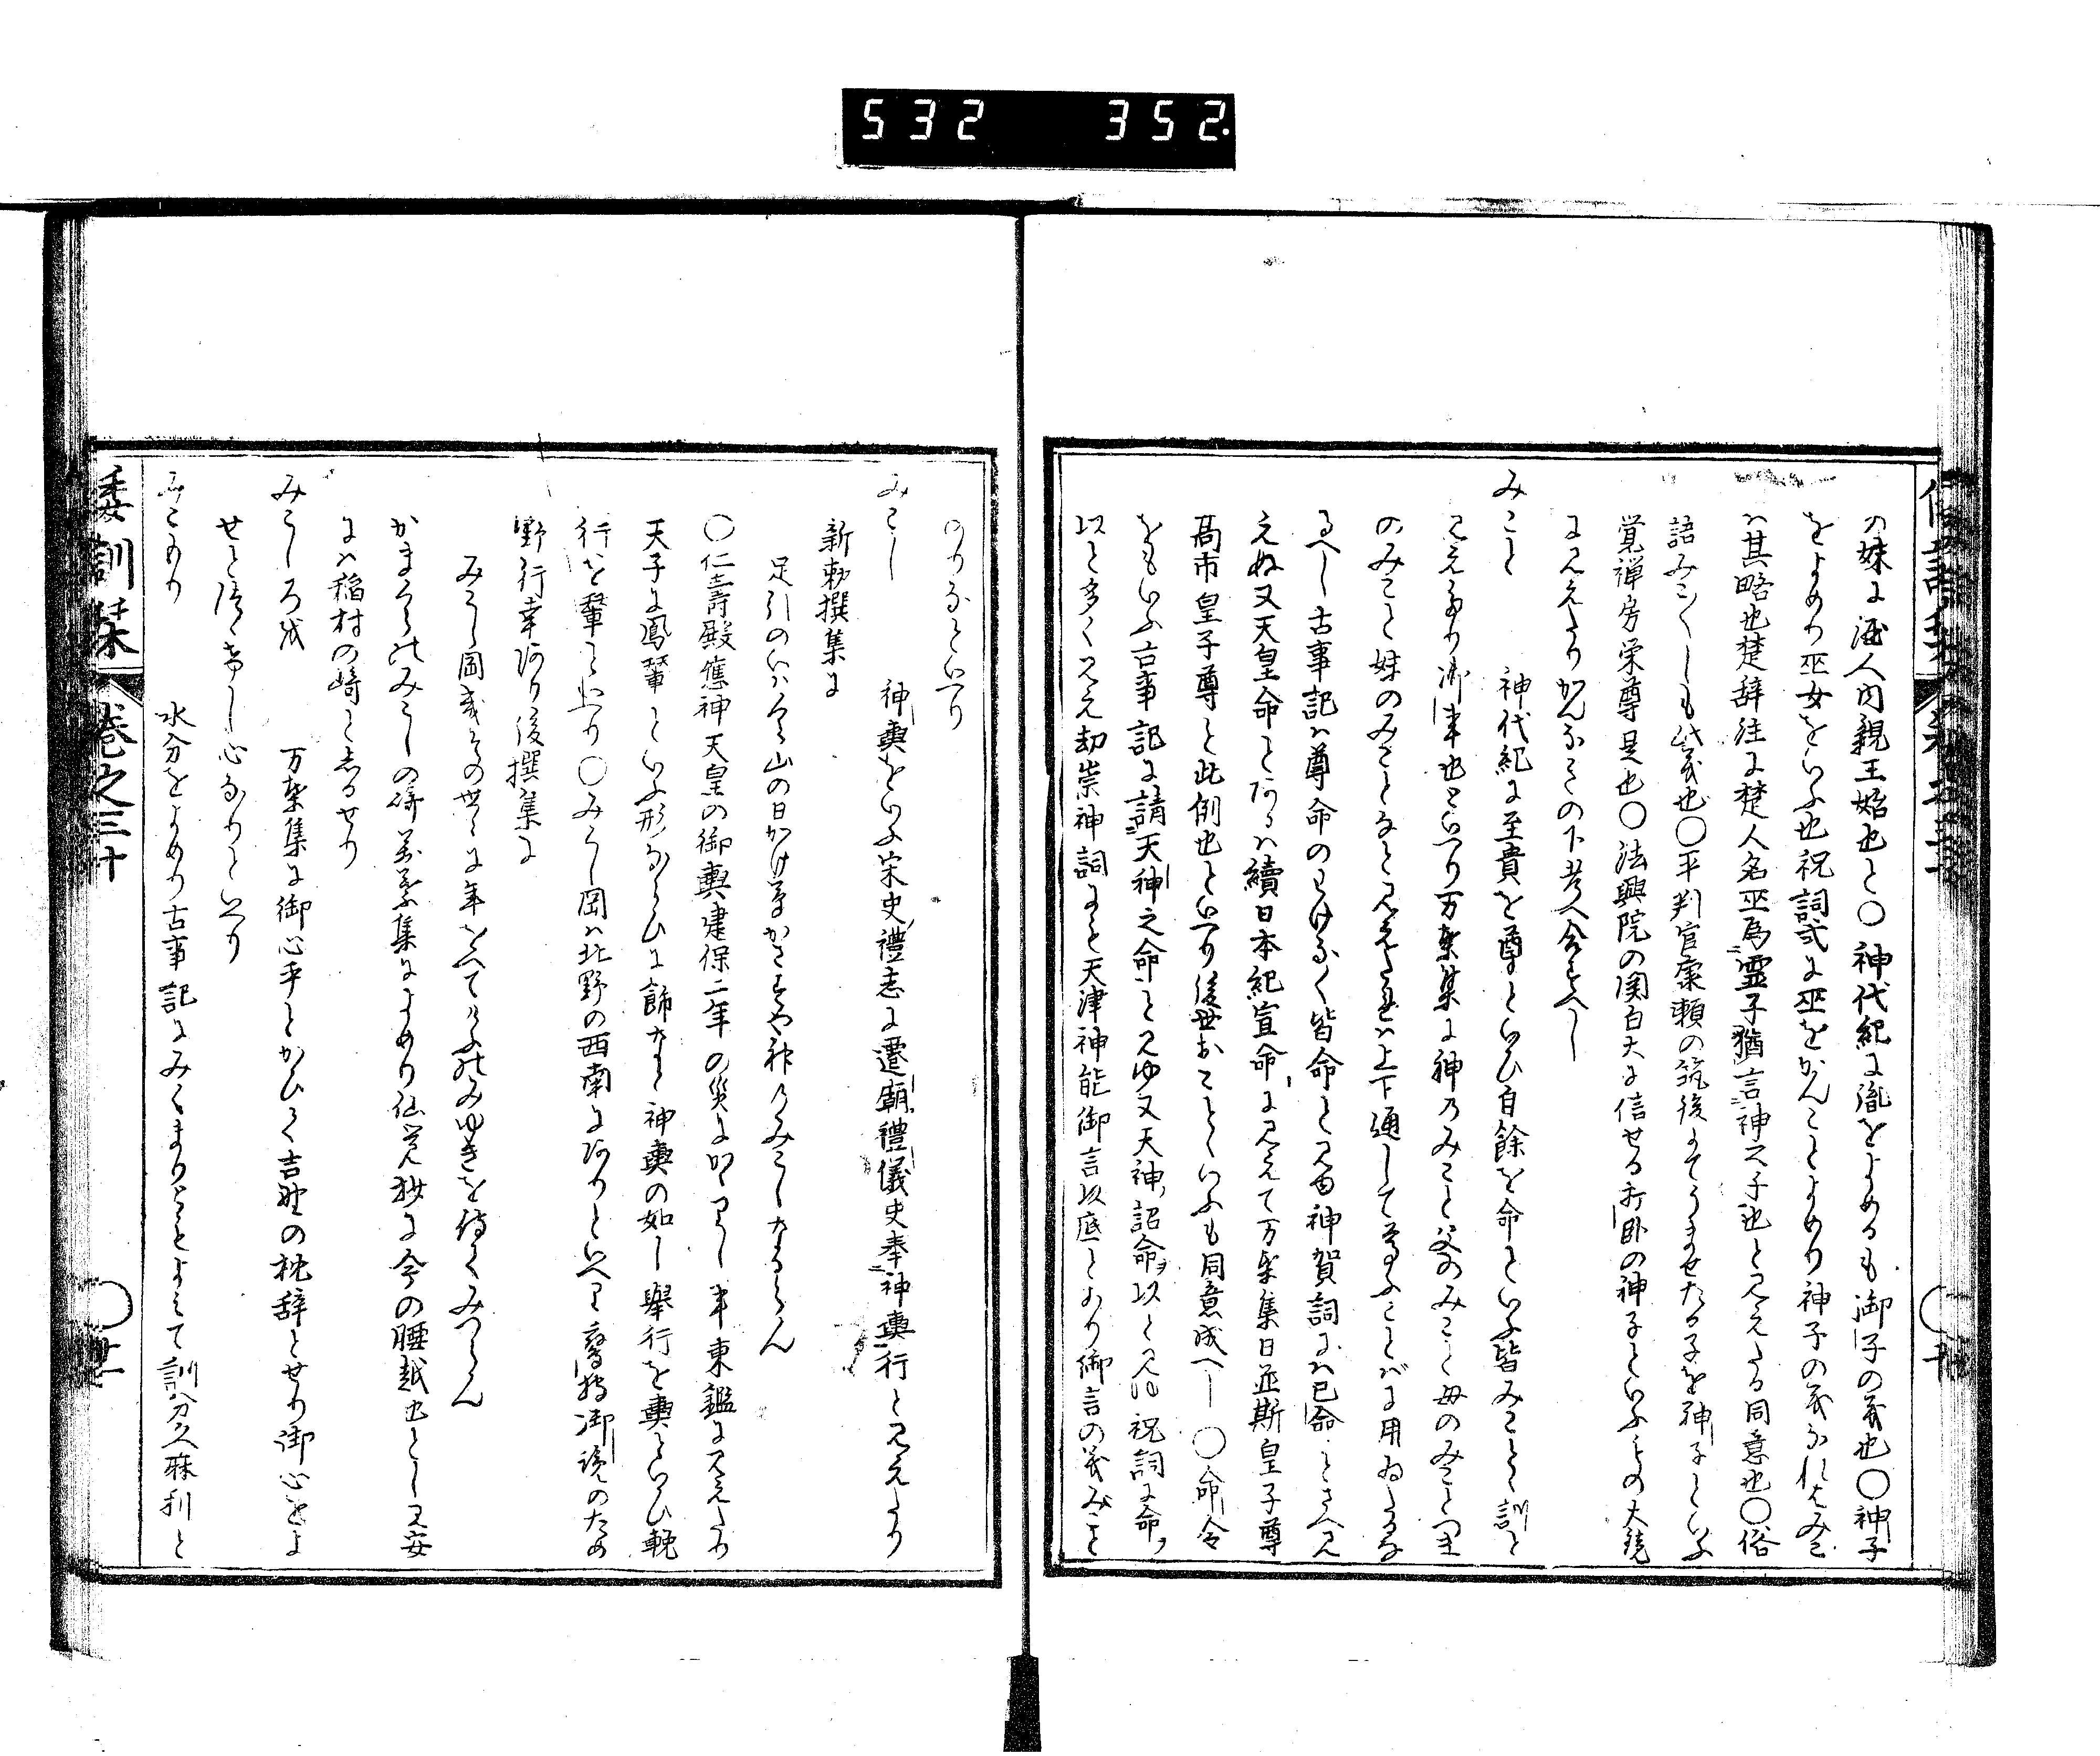 532 352.
の妹に酒人内親王始也と〇神代紀に胤をよめるも御子の義也〇神子
をよめり巫女をいふ也祝詞式に巫をかんことよめり神子の義なれはみこ
は其略也楚辞注に楚人名巫為霊子猶言神之子也と見えたる同意也〇俗
語みこくしも此義也〇平判官康頼の筑後にてうませたる子を神子といふ
覚禅房栄尊是也〇法興院の関白大に信せる打臥の神子といふもの大鏡
に見えたりかんなきの下考へ合すへし
みこと 神代紀に至貴を尊といひ自餘を命といふ皆みことゝ訓と
見えたり御事也といへり万葉集に神のみこと父のみこと母のみことつま
のみこと妹のみことなと見えたれは上下通して尊ふことばに用ゐたるな
るへし古事記は尊命のわけなく皆命と見ゆ神賀詞には己命とさへ見
えぬ又天皇命とあるは續日本紀宣命に見えて万葉集日並斯皇子尊
髙市皇子尊と此例也といへり後世おこといふも同意成へし〇命令
をもいふ古事記に請天神之命と見ゆ又天神詔命以と見ゆ祝詞に命
以と多く見え却崇神詞にと天津神能御言以底とあり御言の義みこと
のりなといへり
みこし 神輿をいふ宋史禮志に遷廟禮儀史奉神輿行と見えたり
新勅撰集に
足引のいはくら山の日かけ草かさすや神のみこしなるらん
〇仁壽殿應神天皇の御輿建保二年の災にかゝりし事東鑑に見えたり
天子に鳳輦といふ形ならひに飾なと神輿の如し舉行を輿といひ輓
行を輦といへり〇みこし岡は北野の西南にありといへり鷹狩御覧のため
野行幸あり後撰集に
みこし岡幾その世々に年をへてけふのみゆきを待てみつらん
かまくらのみこしの崎万葉集によめり仙覚抄に今の腰越也とし又安
には稲村の﨑と志るせり
みこゝろ成 万葉集に御心乎とかひて吉野の枕辞とせり御心をよ
せと 心なりといへり
みこもり 水分をよめり古事記にみくまりとよみて訓分久麻利と
倭訓栞 巻之三十 〇廿一